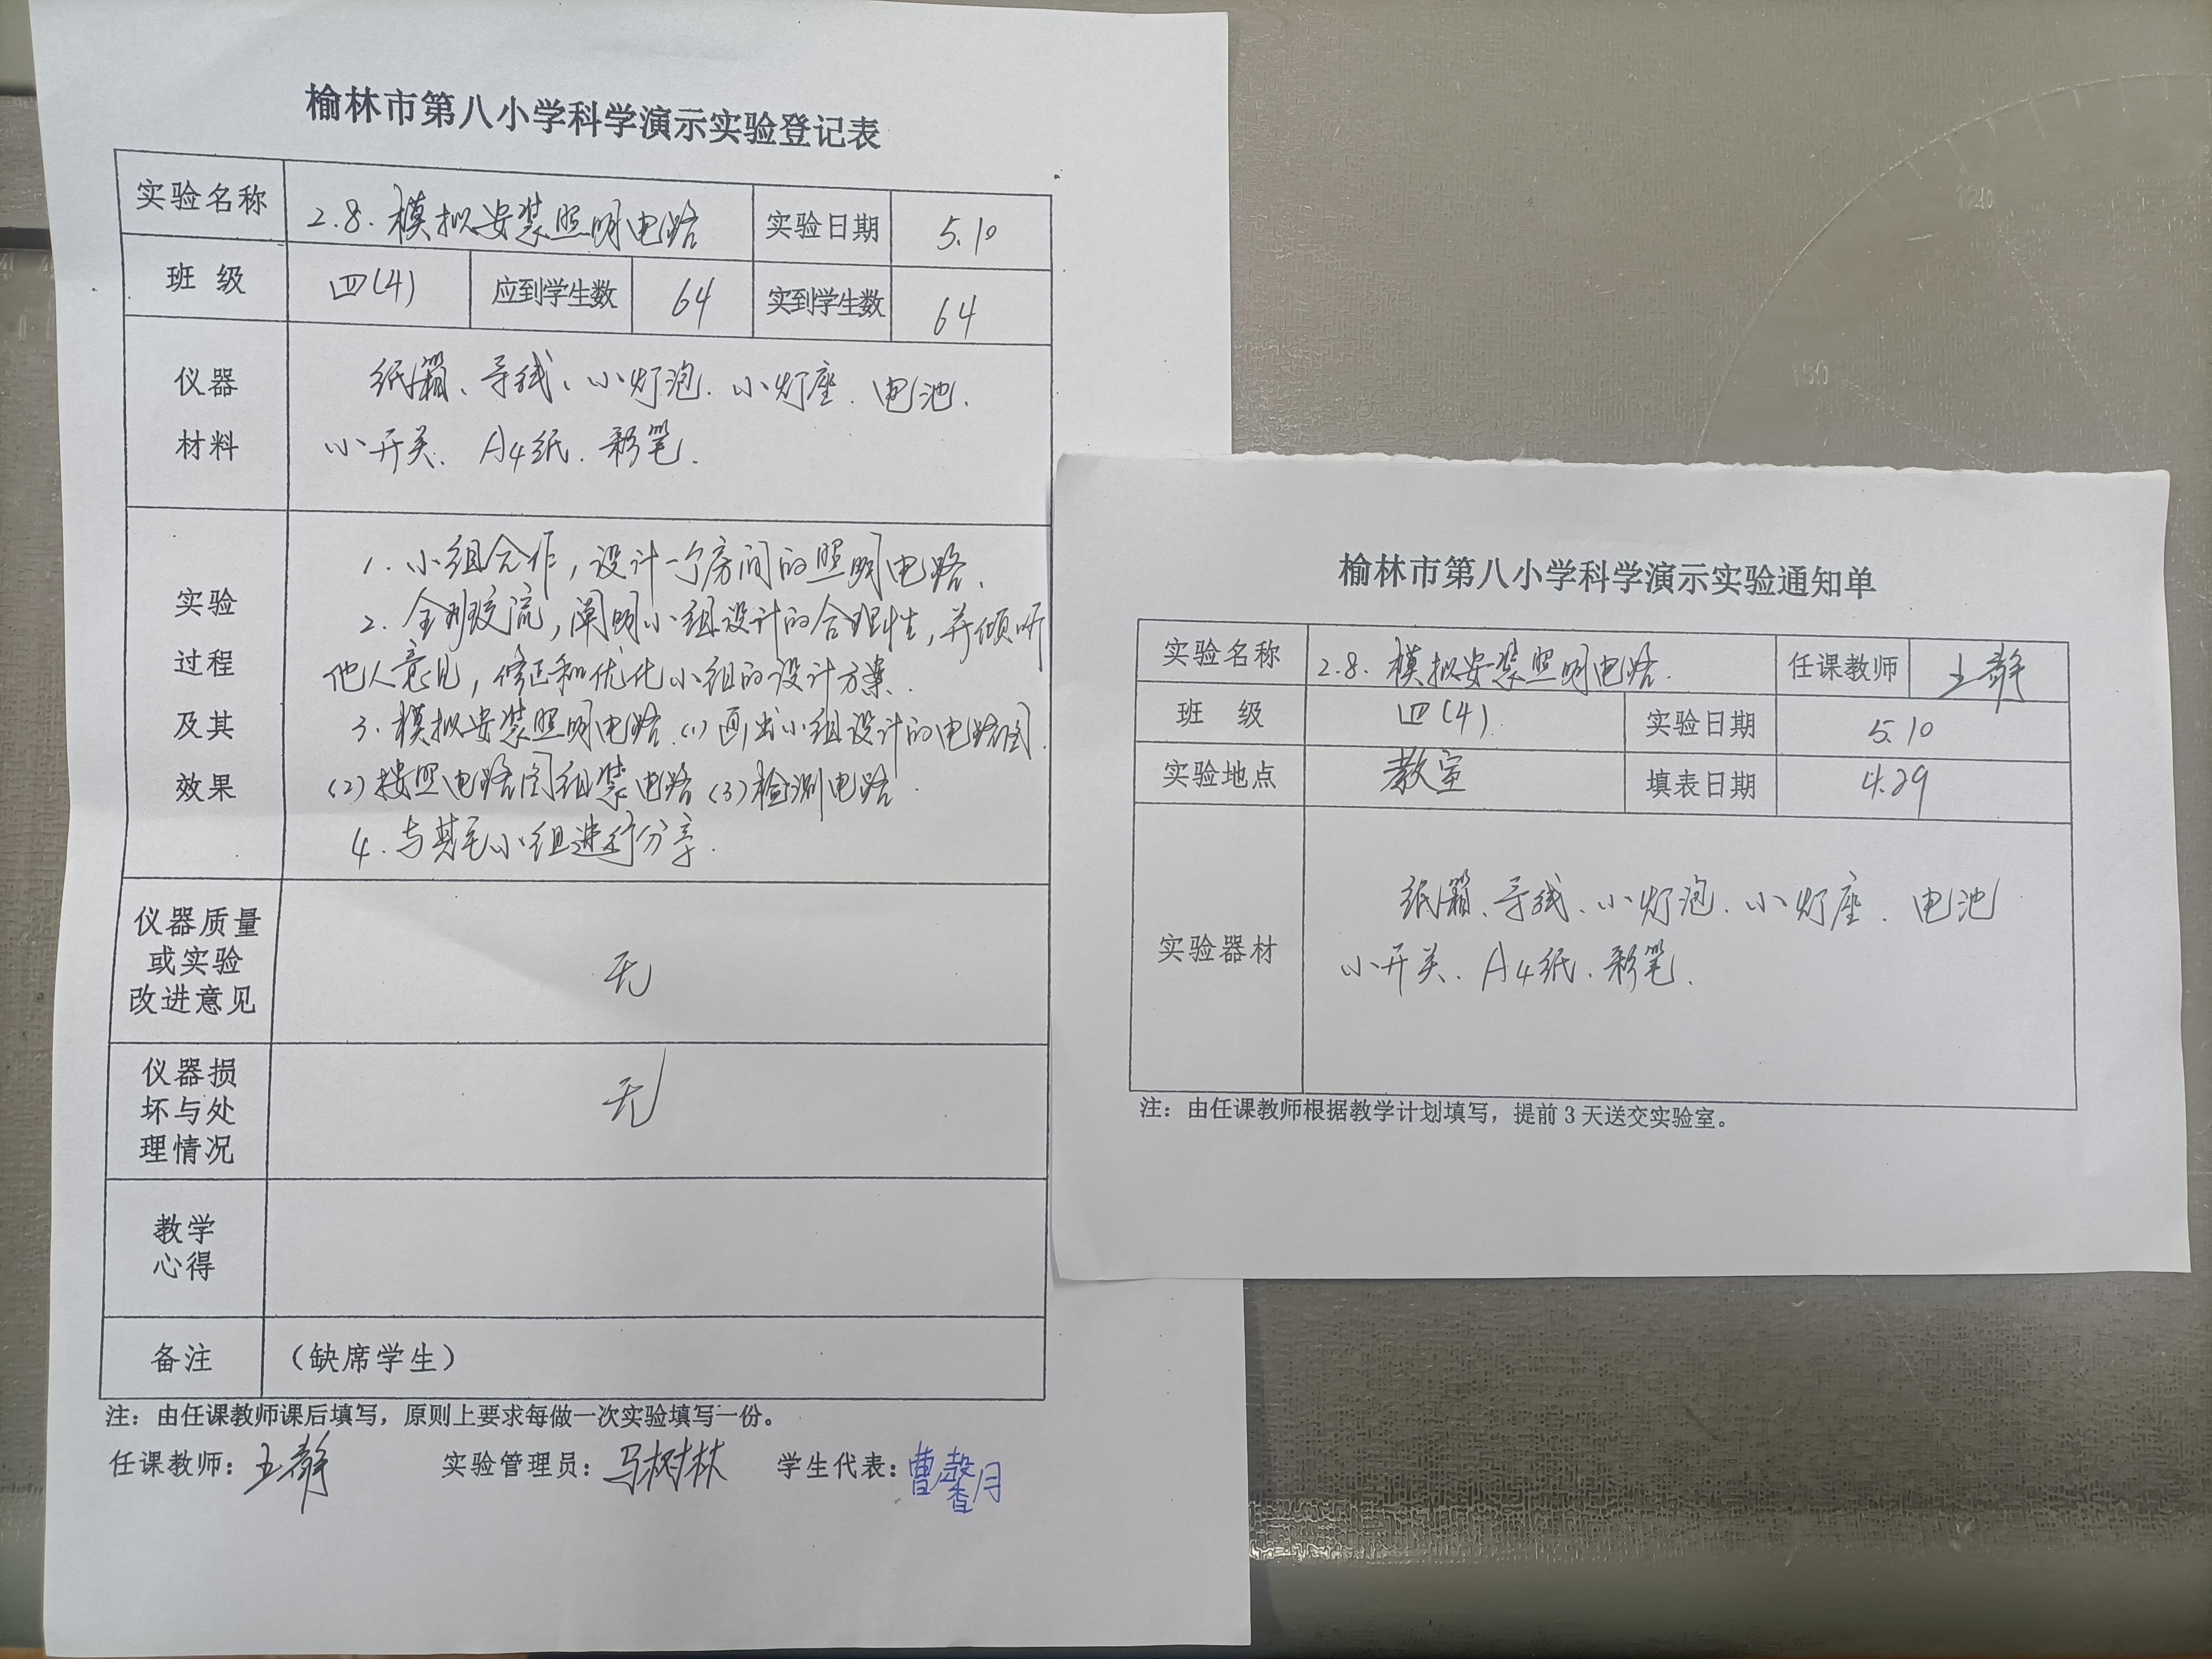 榆林市第八小学科学演示实验登记表
实验名称 2.8.模拟安装照明电路 实验日期 5.10
班 级 四(4) 应到学生数 64 实到学生数 64
仪器
材料
纸箱、导线、小灯泡、小灯座、电池、
小开关、A4纸、彩笔.
实验
过程
及其
效果
1.小组合作,设计一个房间的照明电路.
2.全班交流,阐明小组设计的合理性,并倾听
他人意见,修正和优化小组的设计方案.
3.模拟安装照明电路.(1)画出小组设计的电路图.
(2)按照电路图组装电路(3)检测电路.
4.与其它小组进行分享.
仪器质量
或实验
改进意见
无
仪器损
坏与处
理情况
无
教学
心得
备注 (缺席学生)
注:由任课教师课后填写,原则上要求每做一次实验填写一份。
任课教师:王静 实验管理员:马树林 学生代表:曹馨月
榆林市第八小学科学演示实验通知单
实验名称 2.8.模拟安装照明电路. 任课教师 王静
班 级 四(4). 实验日期 5.10
实验地点 教室 填表日期 4.29
实验器材
纸箱、导线、小灯泡、小灯座、电池
小开关、A4纸、彩笔.
注:由任课教师根据教学计划填写,提前3天送交实验室。
150